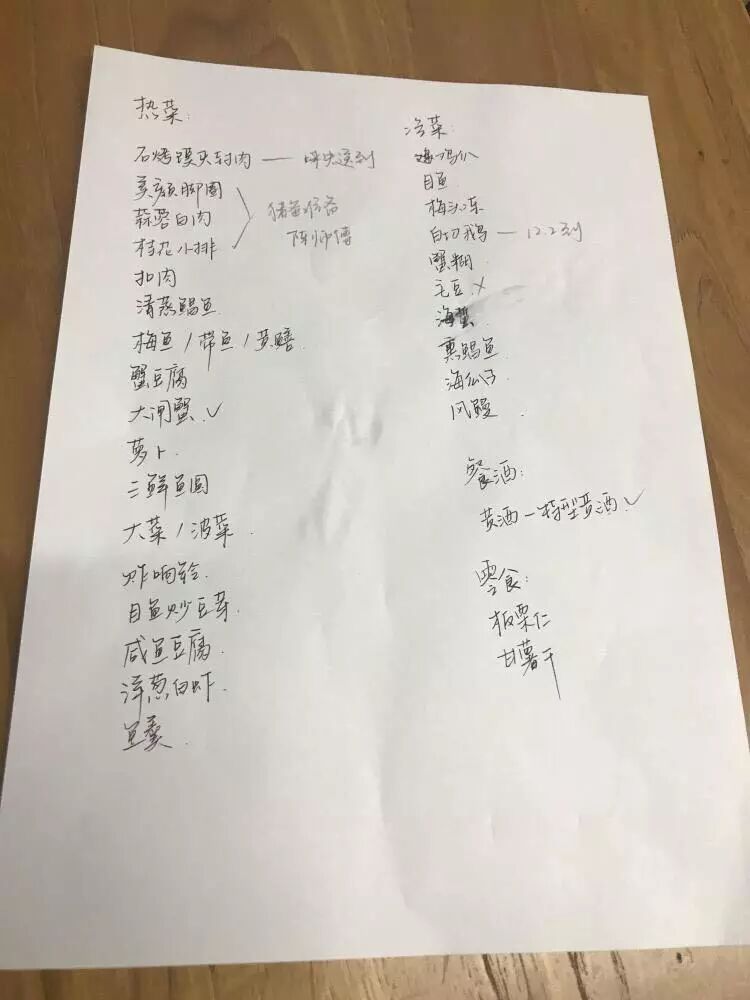 热菜:
石烤馍夹封肉
美颜脚圈
蒜蓉白肉
桂花小排
陈师傅
扣肉
清蒸鲳鱼
梅鱼/带鱼/黄鳝
蟹豆腐
大闸蟹✓
萝卜
三鲜鱼圆
大菜/波菜
炸响铃
目鱼炒豆芽
咸鱼豆腐
洋葱白虾
鱼羹
冷菜:
目鱼
梅冻
白切鹅 — 12.2到
蟹糊
毛豆 ×
海蜇
熏鲳鱼
海瓜子
风鳗
餐酒:
黄酒—特型黄酒✓
零食:
板栗仁
甘薯干